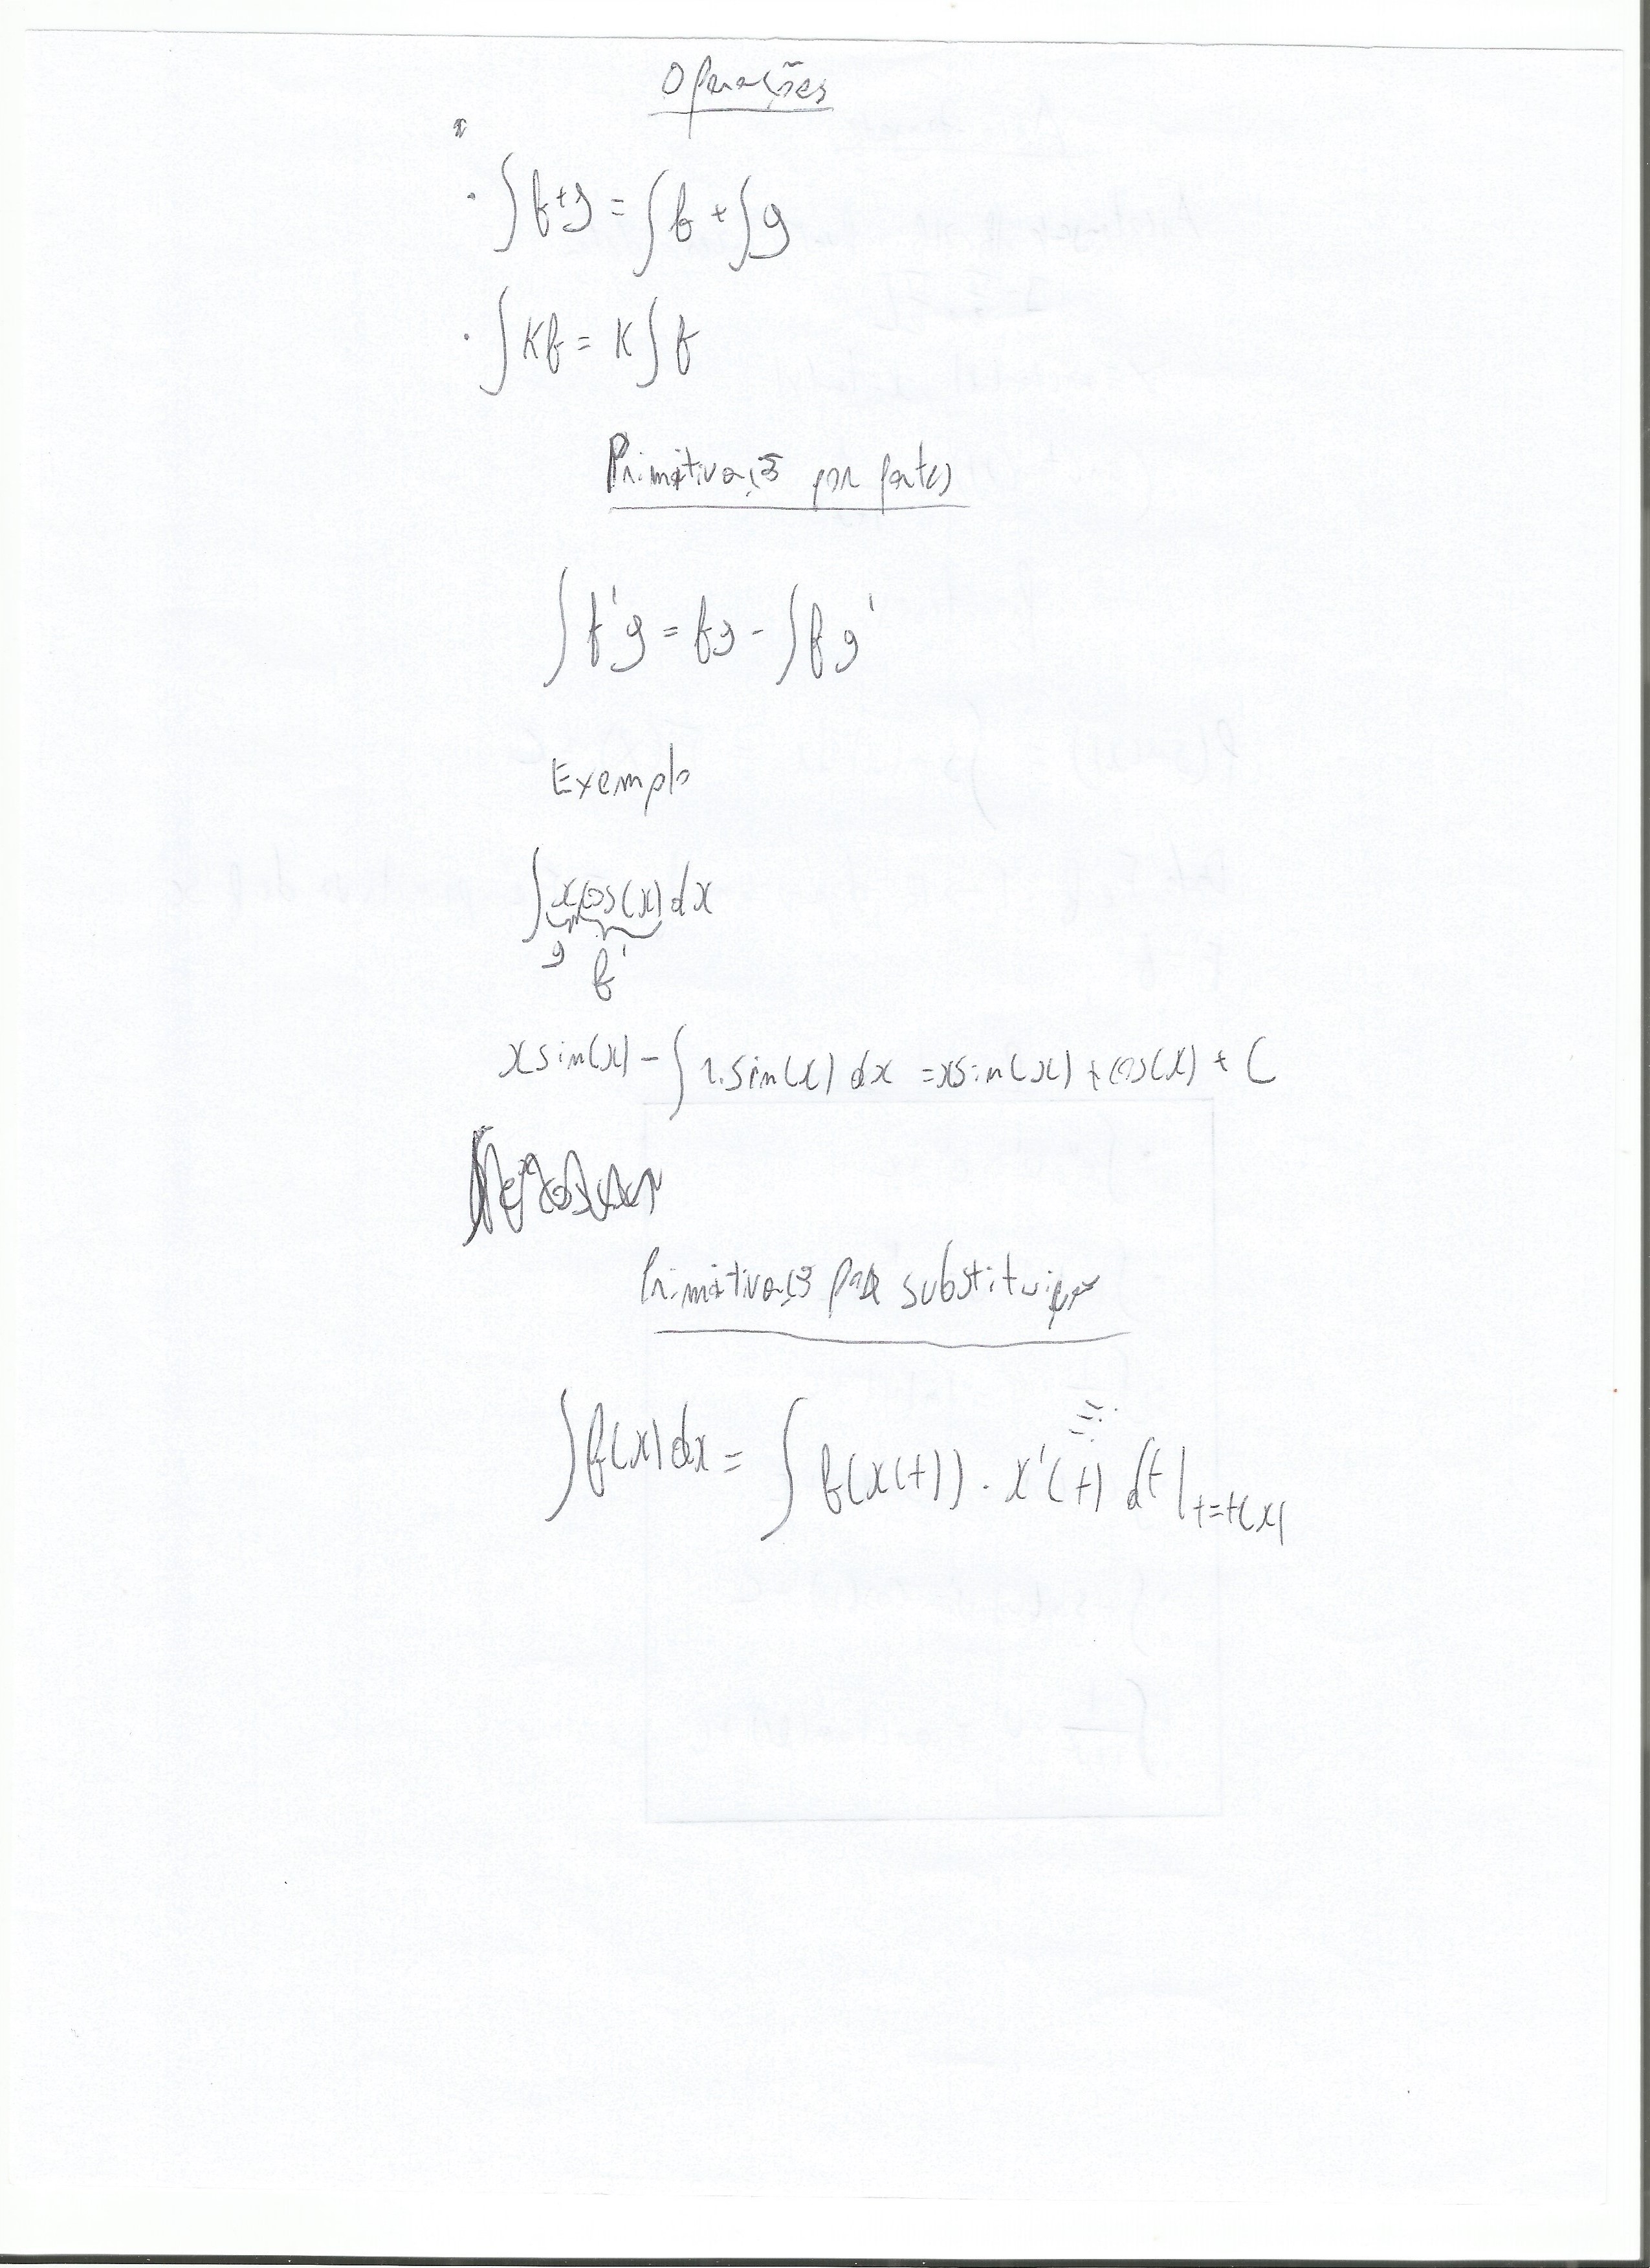 Operações
· ∫f+g = ∫f + ∫g
· ∫Kf = K∫f
Primitivação por partes
∫f'g = fg - ∫fg'
Exemplo
∫x cos(x) dx
g f'
x sin(x) - ∫1.sin(x) dx = x sin(x) + cos(x) + C
Primitivação por substituição
∫f(x) dx = ∫f(x(t)) · x'(t) dt |t=t(x)